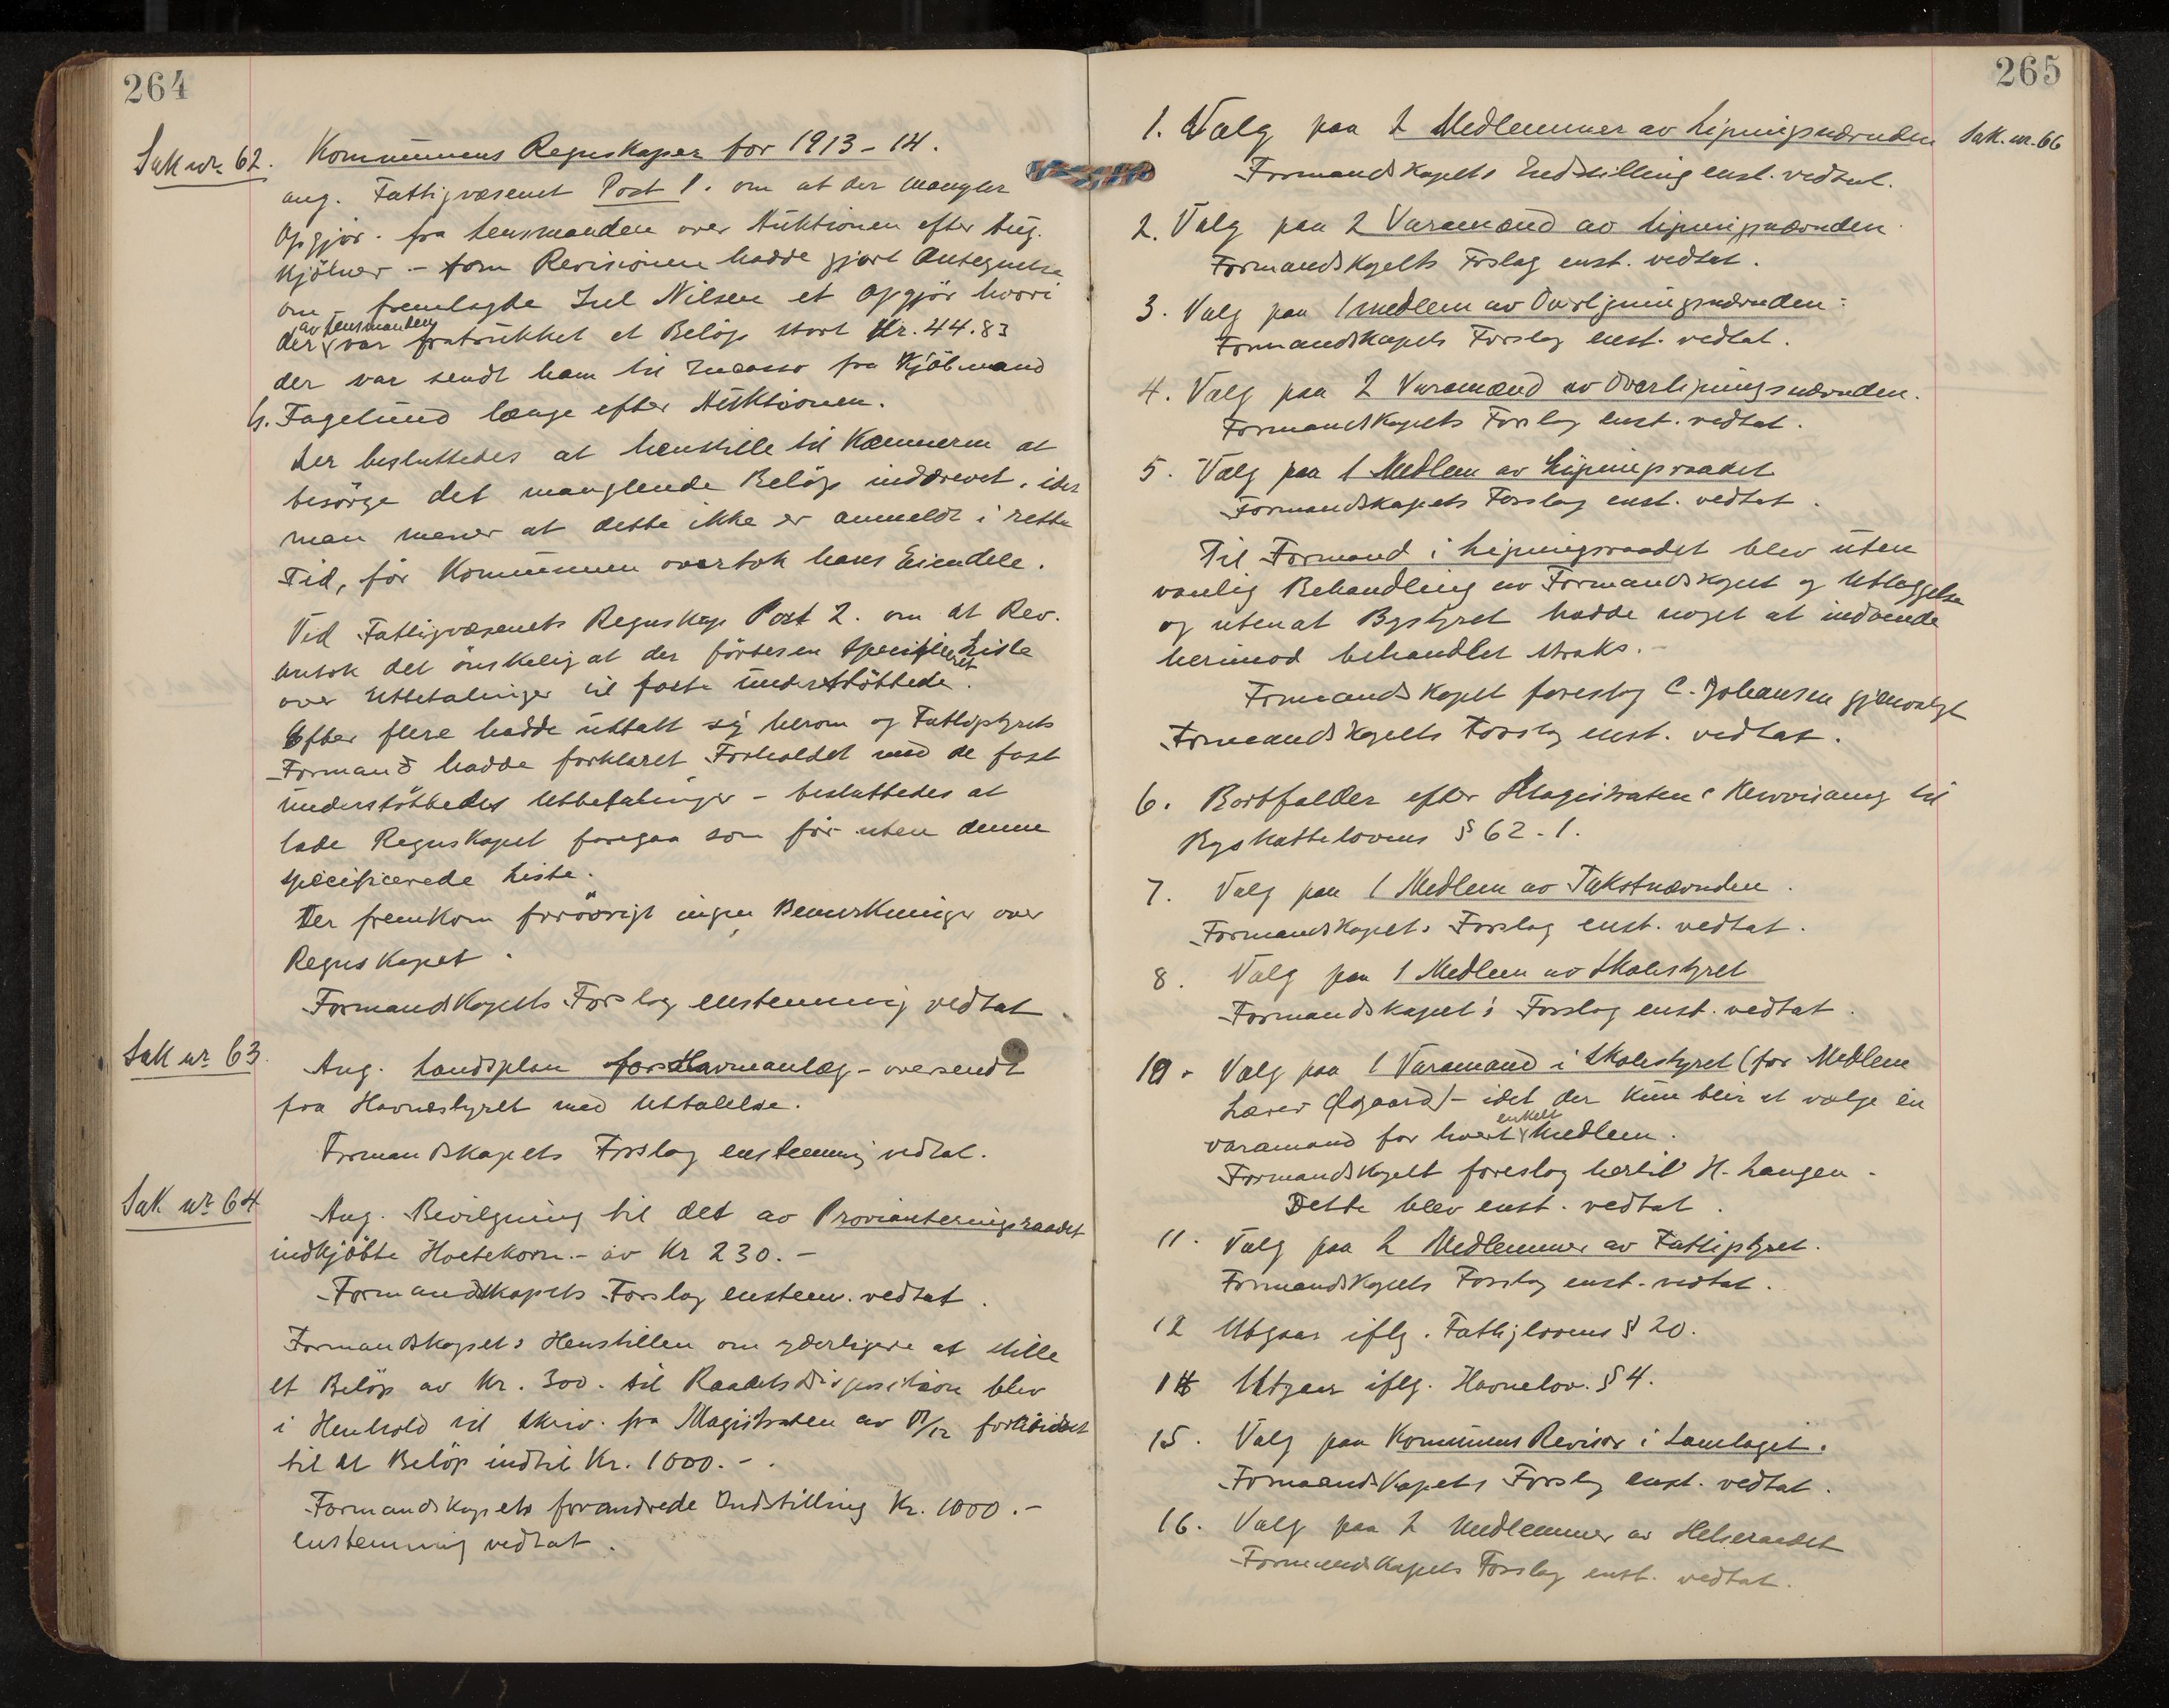 264
Sak nr. 62. Kommunens Regnskaper for 1913-14.
ang. Fattigvæsenet Post 1. om at der mangler
Opgjør fra Lensmanden over Auktionen efter Aug.
Kjölner - som Revisionen hadde gjort Antegnelse
om - fremlagde Juel Nilsen et Opgjör hvori
der av Lensmanden var fratrukket et Belöp stort Kr. 44.83
der var sendt ham til Incasso fra Kjöbmand
H. Fagelund længe efter Auktionen.
Der besluttedes at henstille til Kæmneren at
besörge det manglende Belöp inddrevet, idet
man mener at dette ikke er anmeldt i rette
Tid, för Kommunen overtok hans Eiendele.
Ved Fattigvæsenets Regnskap Post 2. om at Rev.
antok det önskelig at der förtes en specificeret Liste
over Utbetalinger til faste Understöttede.
Efter flere hadde uttalt sig herom og Fattigstyrets
Formand hadde forklaret Forholdet med de fast
understöttedes Utbetalinger - besluttedes at
lade Regnskapet foregaa som för uten denne
specificerede Liste.
Der fremkom forövrigt ingen Bemerkninger over
Regnskapet.
Formandskapets Forslag enstemmig vedtat.
Sak nr. 63. Ang. Landsplan for Havneanlæg - oversendt
fra Havnestyret med Uttalelse.
Formandskapets Forslag enstemmig vedtat.
Sak nr. 64 Ang. Bevilgning til det av Provianteringsraadet
indkjöbte Hvetekorn - av Kr 230.-
Formandskapets Forslag enstem. vedtat.
Formandskapets Henstillen om yderligere at stille
et Belöp av Kr. 300. til Raadets Disposition blev
i Henhold til Skriv. fra Magistraten av /12 forhöiet
til et Belöp indtil Kr. 1000.-.
Formandskapets forandrede Indstilling Kr. 1000.-
enstemmig vedtat.
265
1. Valg paa 2 Medlemmer av Ligningsnævnden Sak. nr. 66
Formandskapets Indstilling enst. vedtat.
2. Valg paa 2 Varamænd av Ligningsnævnden.
Formandskapets Forslag enst. vedtat.
3. Valg paa 1 medlem av Overligningsnævnden:
Formandskapets Forslag enst. vedtat.
4. Valg paa 2 Varamænd av Overligningsnævnden.
Formandskapets Forslag enst. vedtat.
5. Valg paa 1 Medlem av Ligningsraadet
Formandskapets Forslag enst. vedtat.
Til Formand i Ligningsraadet blev uten
vanlig Behandling av Formandskapet og Utlæggelse
og uten at Bystyret hadde noget at indvende
herimod behandlet straks.
Formandskapet foreslog C. Johansen gjenvalgt
Formandskapets Forslag enst. vedtat.
6. Bortfalder efter Magistratens Henvisning til
Byskattelovens § 62-1.
7. Valg paa 1 Medlem av Takstnævnden.
Formandskapets Forslag enst. vedtat.
8. Valg paa 1 Medlem av Skolestyret
Formandskapets Forslag enst. vedtat.
10. Valg paa 1 Varamand i Skolestyret (for Medlem
Lærer Ødgaard) - idet der kun blir at vælge en
varamand for hvert enkelt Medlem.
Formandskapet foreslog hertil H. Langen.
Dette blev enst. vedtat.
11. Valg paa 2 Medlemmer av Fattigstyret.
Formandskapets Forslag enst. vedtat.
12 Utgaar iflg. Fattiglovens § 20.
14 Utgaar iflg. Havnelov. § 4.
15. Valg paa Kommunens Revisor i Samlaget.
Formandskapets Forslag enst. vedtat.
16. Valg paa 2 Medlemmer av Helseraadet
Formandskapets Forslag enst. vedtat.